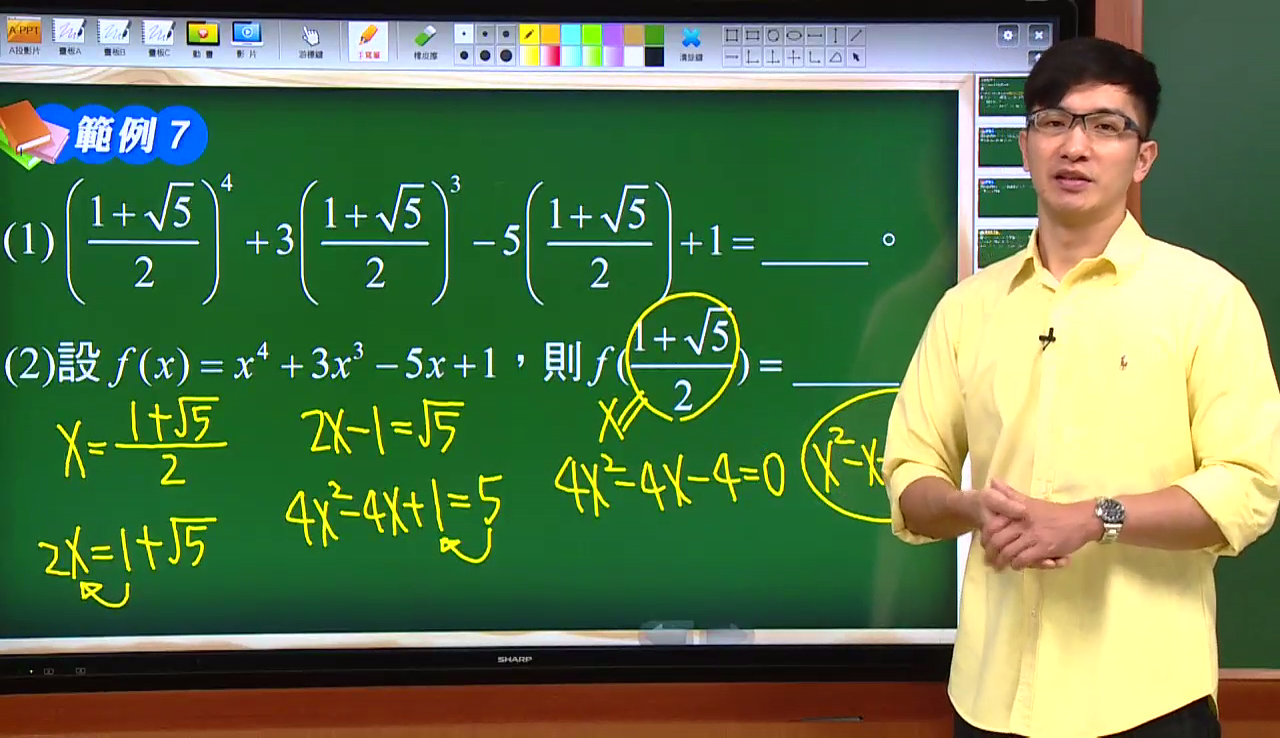 A-PPT
A投影片 畫板A 畫板B 畫板C 動畫 影片 游標鍵 手寫筆 橡皮擦 清除鍵
範例 7
(1) ((1+√5)/2)^4 +3((1+√5)/2)^3 −5((1+√5)/2)+1=______ 。
(2)設 f(x)=x^4+3x^3−5x+1，則 f((1+√5)/2)=______
x=
x=(1+√5)/2
2x−1=√5
4x²−4x−4=0
x²−x
4x²−4x+1=5
2x=1+√5
SHARP